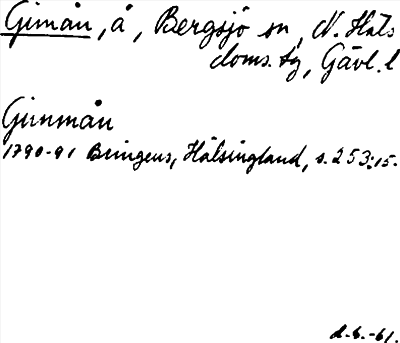 Gimån, å, Bergsjö sn, N. Häls
doms. sg, Gävl. l
Gimmån
1790-91 Bringeus, Hälsingland, s. 253:15.
d. b. -61.